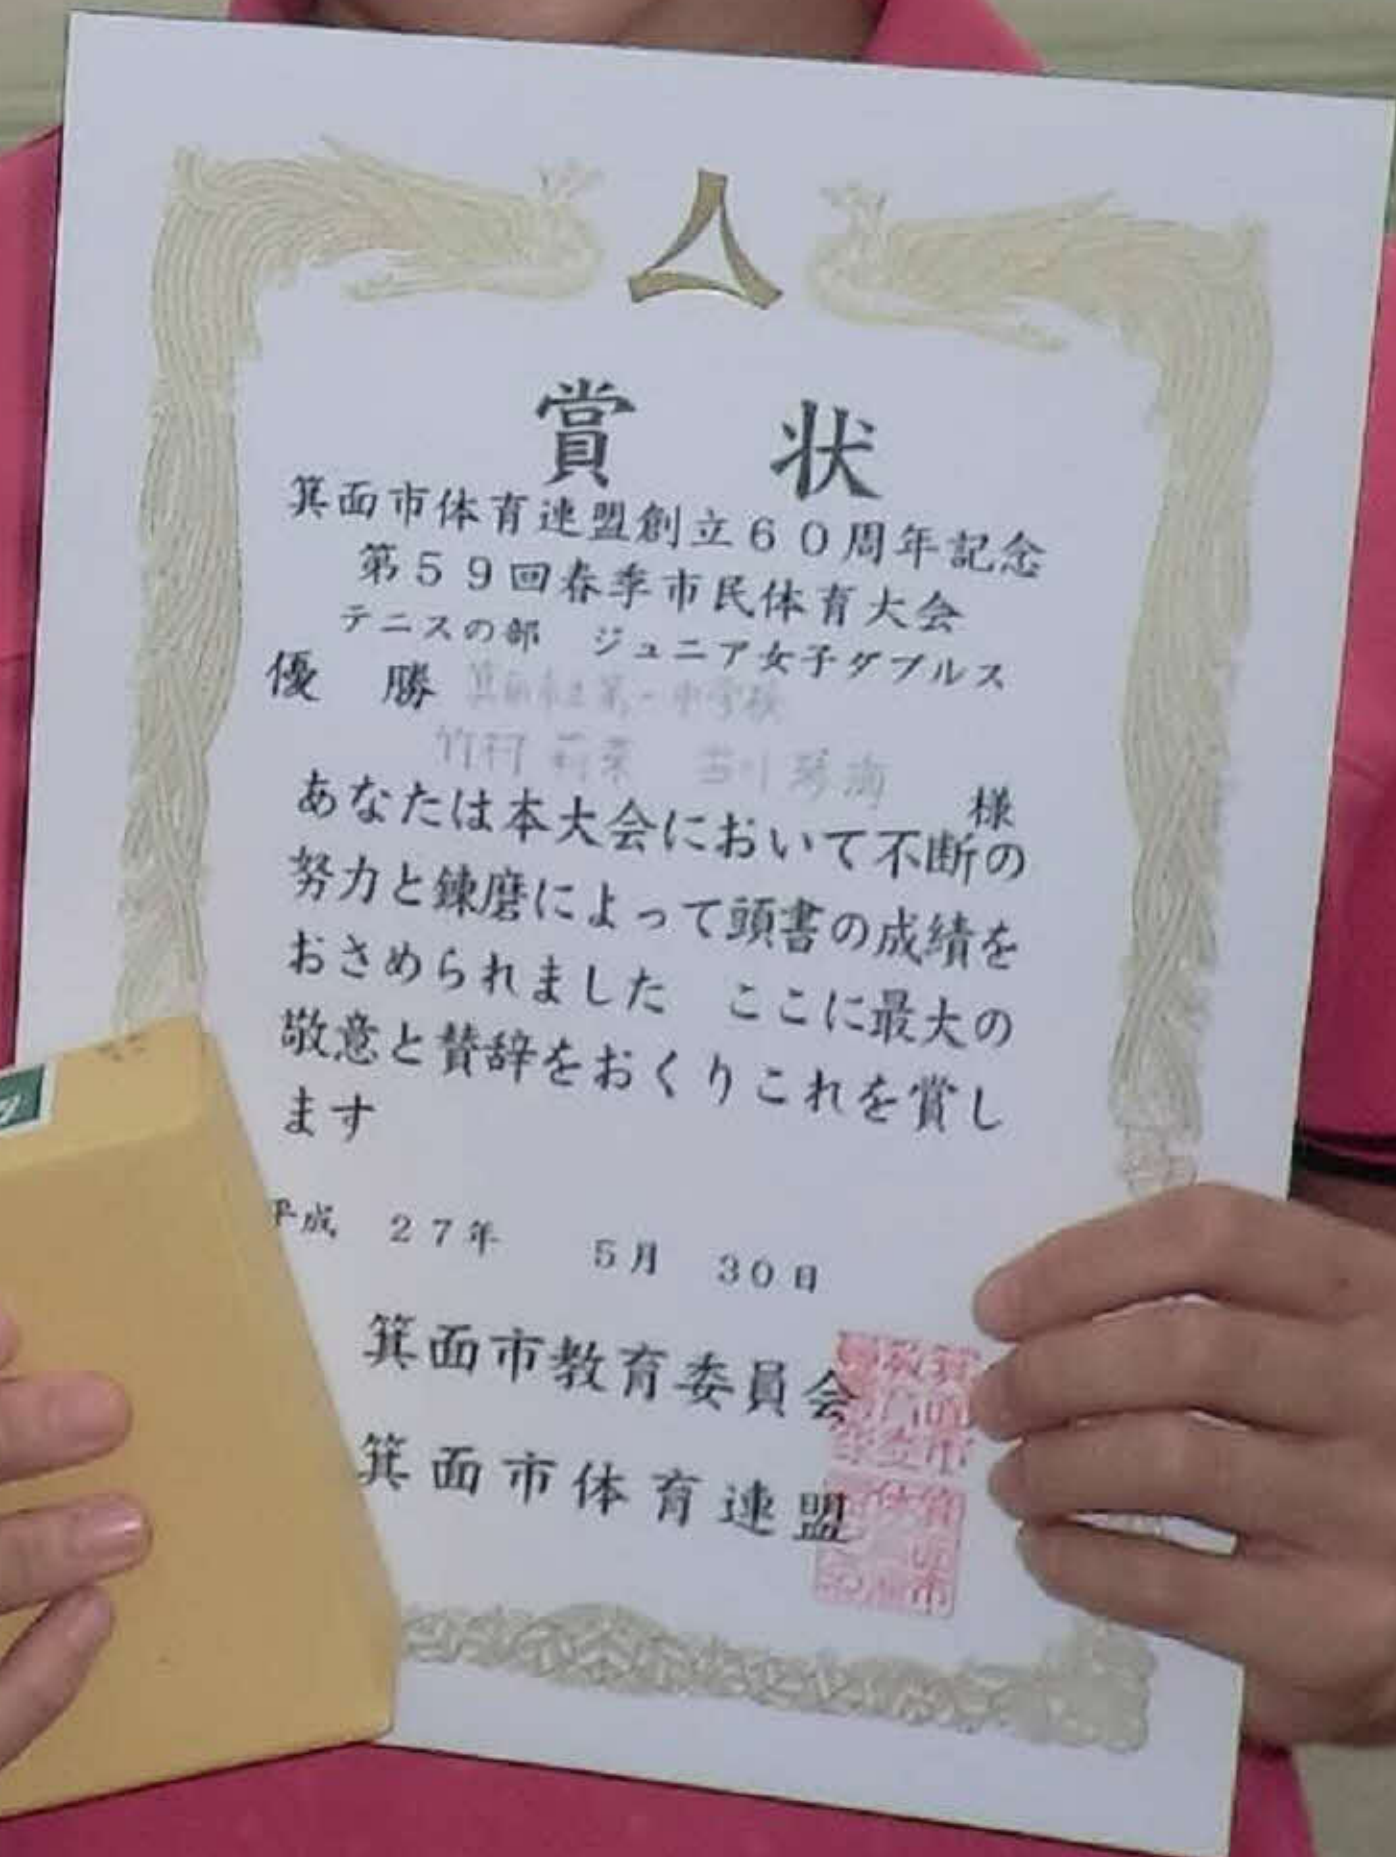 賞 状
箕面市体育連盟創立60周年記念
第59回春季市民体育大会
テニスの部 ジュニア女子ダブルス
優 勝 箕面市立第一中学校
竹村 莉菜 琴海 様
あなたは本大会において不断の
努力と錬磨によって頭書の成績を
おさめられました ここに最大の
敬意と賛辞をおくりこれを賞し
ます
平成 27年 5月 30日
箕面市教育委員会
箕面市体育連盟